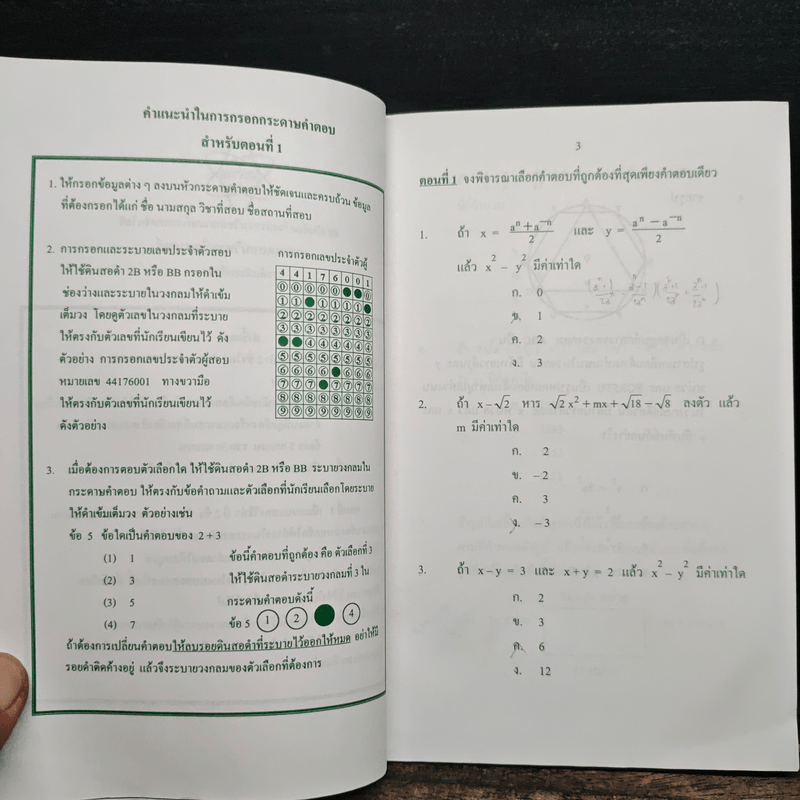 คำแนะนำในการกรอกกระดาษคำตอบ
สำหรับตอนที่ 1
1. ให้กรอกข้อมูลต่าง ๆ ลงบนหัวกระดาษคำตอบให้ชัดเจนและครบถ้วน ข้อมูล
ที่ต้องกรอกได้แก่ ชื่อ นามสกุล วิชาที่สอบ ชื่อสถานที่สอบ
2. การกรอกและระบายเลขประจำตัวสอบ
ให้ใช้ดินสอดำ 2B หรือ BB กรอกใน
ช่องว่างและระบายในวงกลมให้ดำเข้ม
เต็มวง โดยดูตัวเลขในวงกลมที่ระบาย
ให้ตรงกับตัวเลขที่นักเรียนเขียนไว้ ดัง
ตัวอย่าง การกรอกเลขประจำตัวผู้สอบ
หมายเลข 44176001 ทางขวามือ
ให้ตรงกับตัวเลขที่นักเรียนเขียนไว้
ดังตัวอย่าง
การกรอกเลขประจำตัวผู้
4 4 1 7 6 0 0 1
0 0 0 0 0 0
1 1 1 1 1 1
2 2 2 2 2 2 2 2
3 3 3 3 3 3 3 3
4 4 4 4 4 4
5 5 5 5 5 5 5 5
6 6 6 6 6 6 6
7 7 7 7 7 7 7
8 8 8 8 8 8 8 8
9 9 9 9 9 9 9 9
3. เมื่อต้องการตอบตัวเลือกใด ให้ใช้ดินสอดำ 2B หรือ BB ระบายวงกลมใน
กระดาษคำตอบ ให้ตรงกับข้อคำถามและตัวเลือกที่นักเรียนเลือกโดยระบาย
ให้ดำเข้มเต็มวง ตัวอย่างเช่น
ข้อ 5 ข้อใดเป็นคำตอบของ 2 + 3
(1) 1 ข้อนี้คำตอบที่ถูกต้อง คือ ตัวเลือกที่ 3
(2) 3 ให้ใช้ดินสอดำระบายวงกลมที่ 3 ใน
(3) 5 กระดาษคำตอบดังนี้
(4) 7 ข้อ 5 1 2 4
ถ้าต้องการเปลี่ยนคำตอบให้ลบรอยดินสอดำที่ระบายไว้ออกให้หมด อย่าให้มี
รอยดำติดค้างอยู่ แล้วจึงระบายวงกลมของตัวเลือกที่ต้องการ
3
ตอนที่ 1 จงพิจารณาเลือกคำตอบที่ถูกต้องที่สุดเพียงคำตอบเดียว
1. ถ้า x = (aⁿ + a⁻ⁿ)/2 และ y = (aⁿ − a⁻ⁿ)/2
แล้ว x² − y² มีค่าเท่าใด
ก. 0
ข. 1
ค. 2
ง. 3
2. ถ้า x − √2 หาร √2 x² + mx + √18 − √8 ลงตัว แล้ว
m มีค่าเท่าใด
ก. 2
ข. − 2
ค. 3
ง. − 3
3. ถ้า x − y = 3 และ x + y = 2 แล้ว x² − y² มีค่าเท่าใด
ก. 2
ข. 3
ค. 6
ง. 12